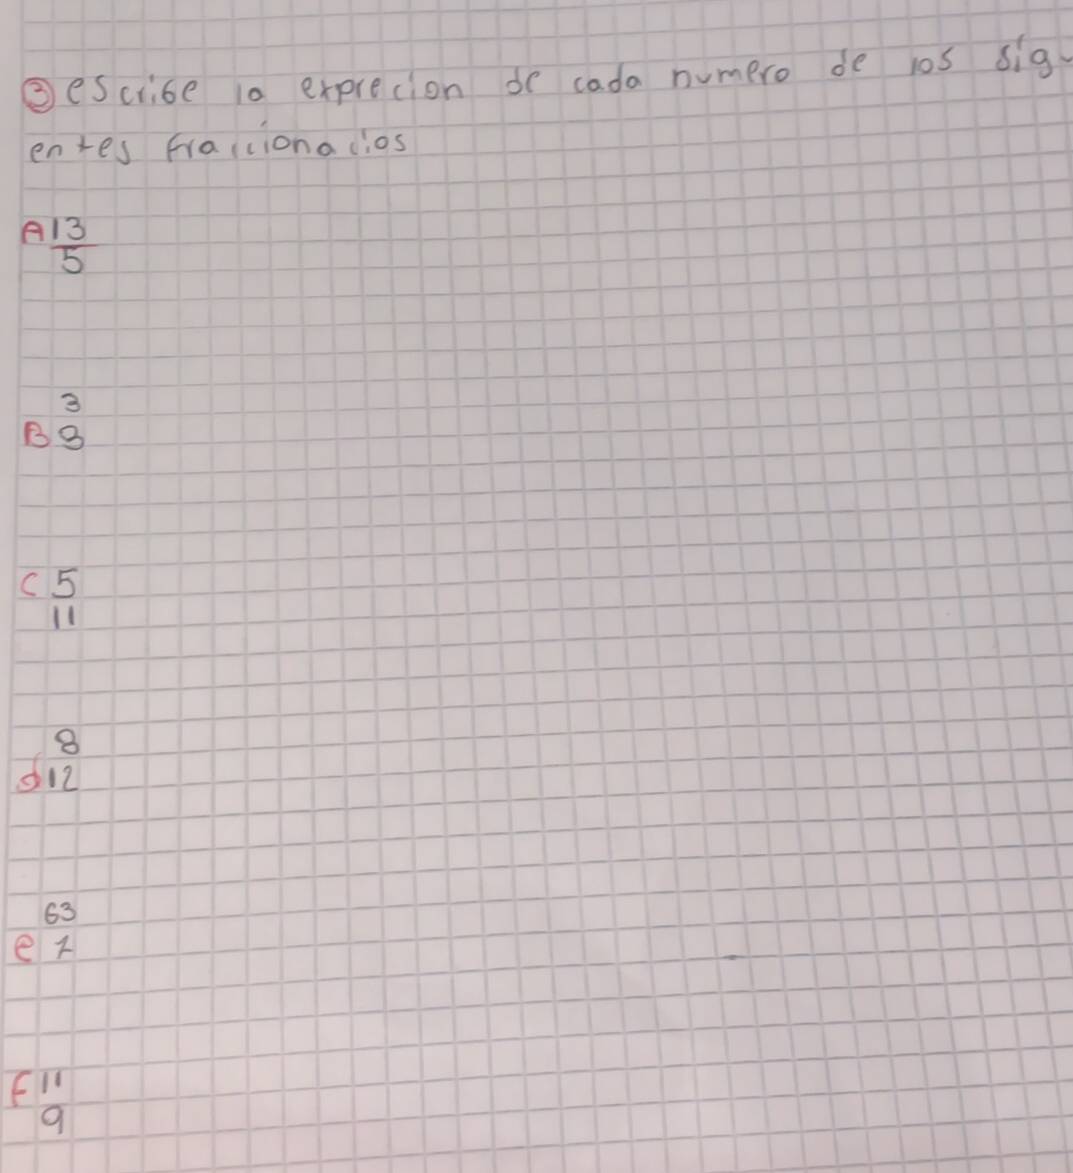 ③ escribe la expreción de cada numero de los sig-
entes fraccionacios
A 13
5
3
B 8
C 5
11
8
d 12
63
e 7
F 11
9